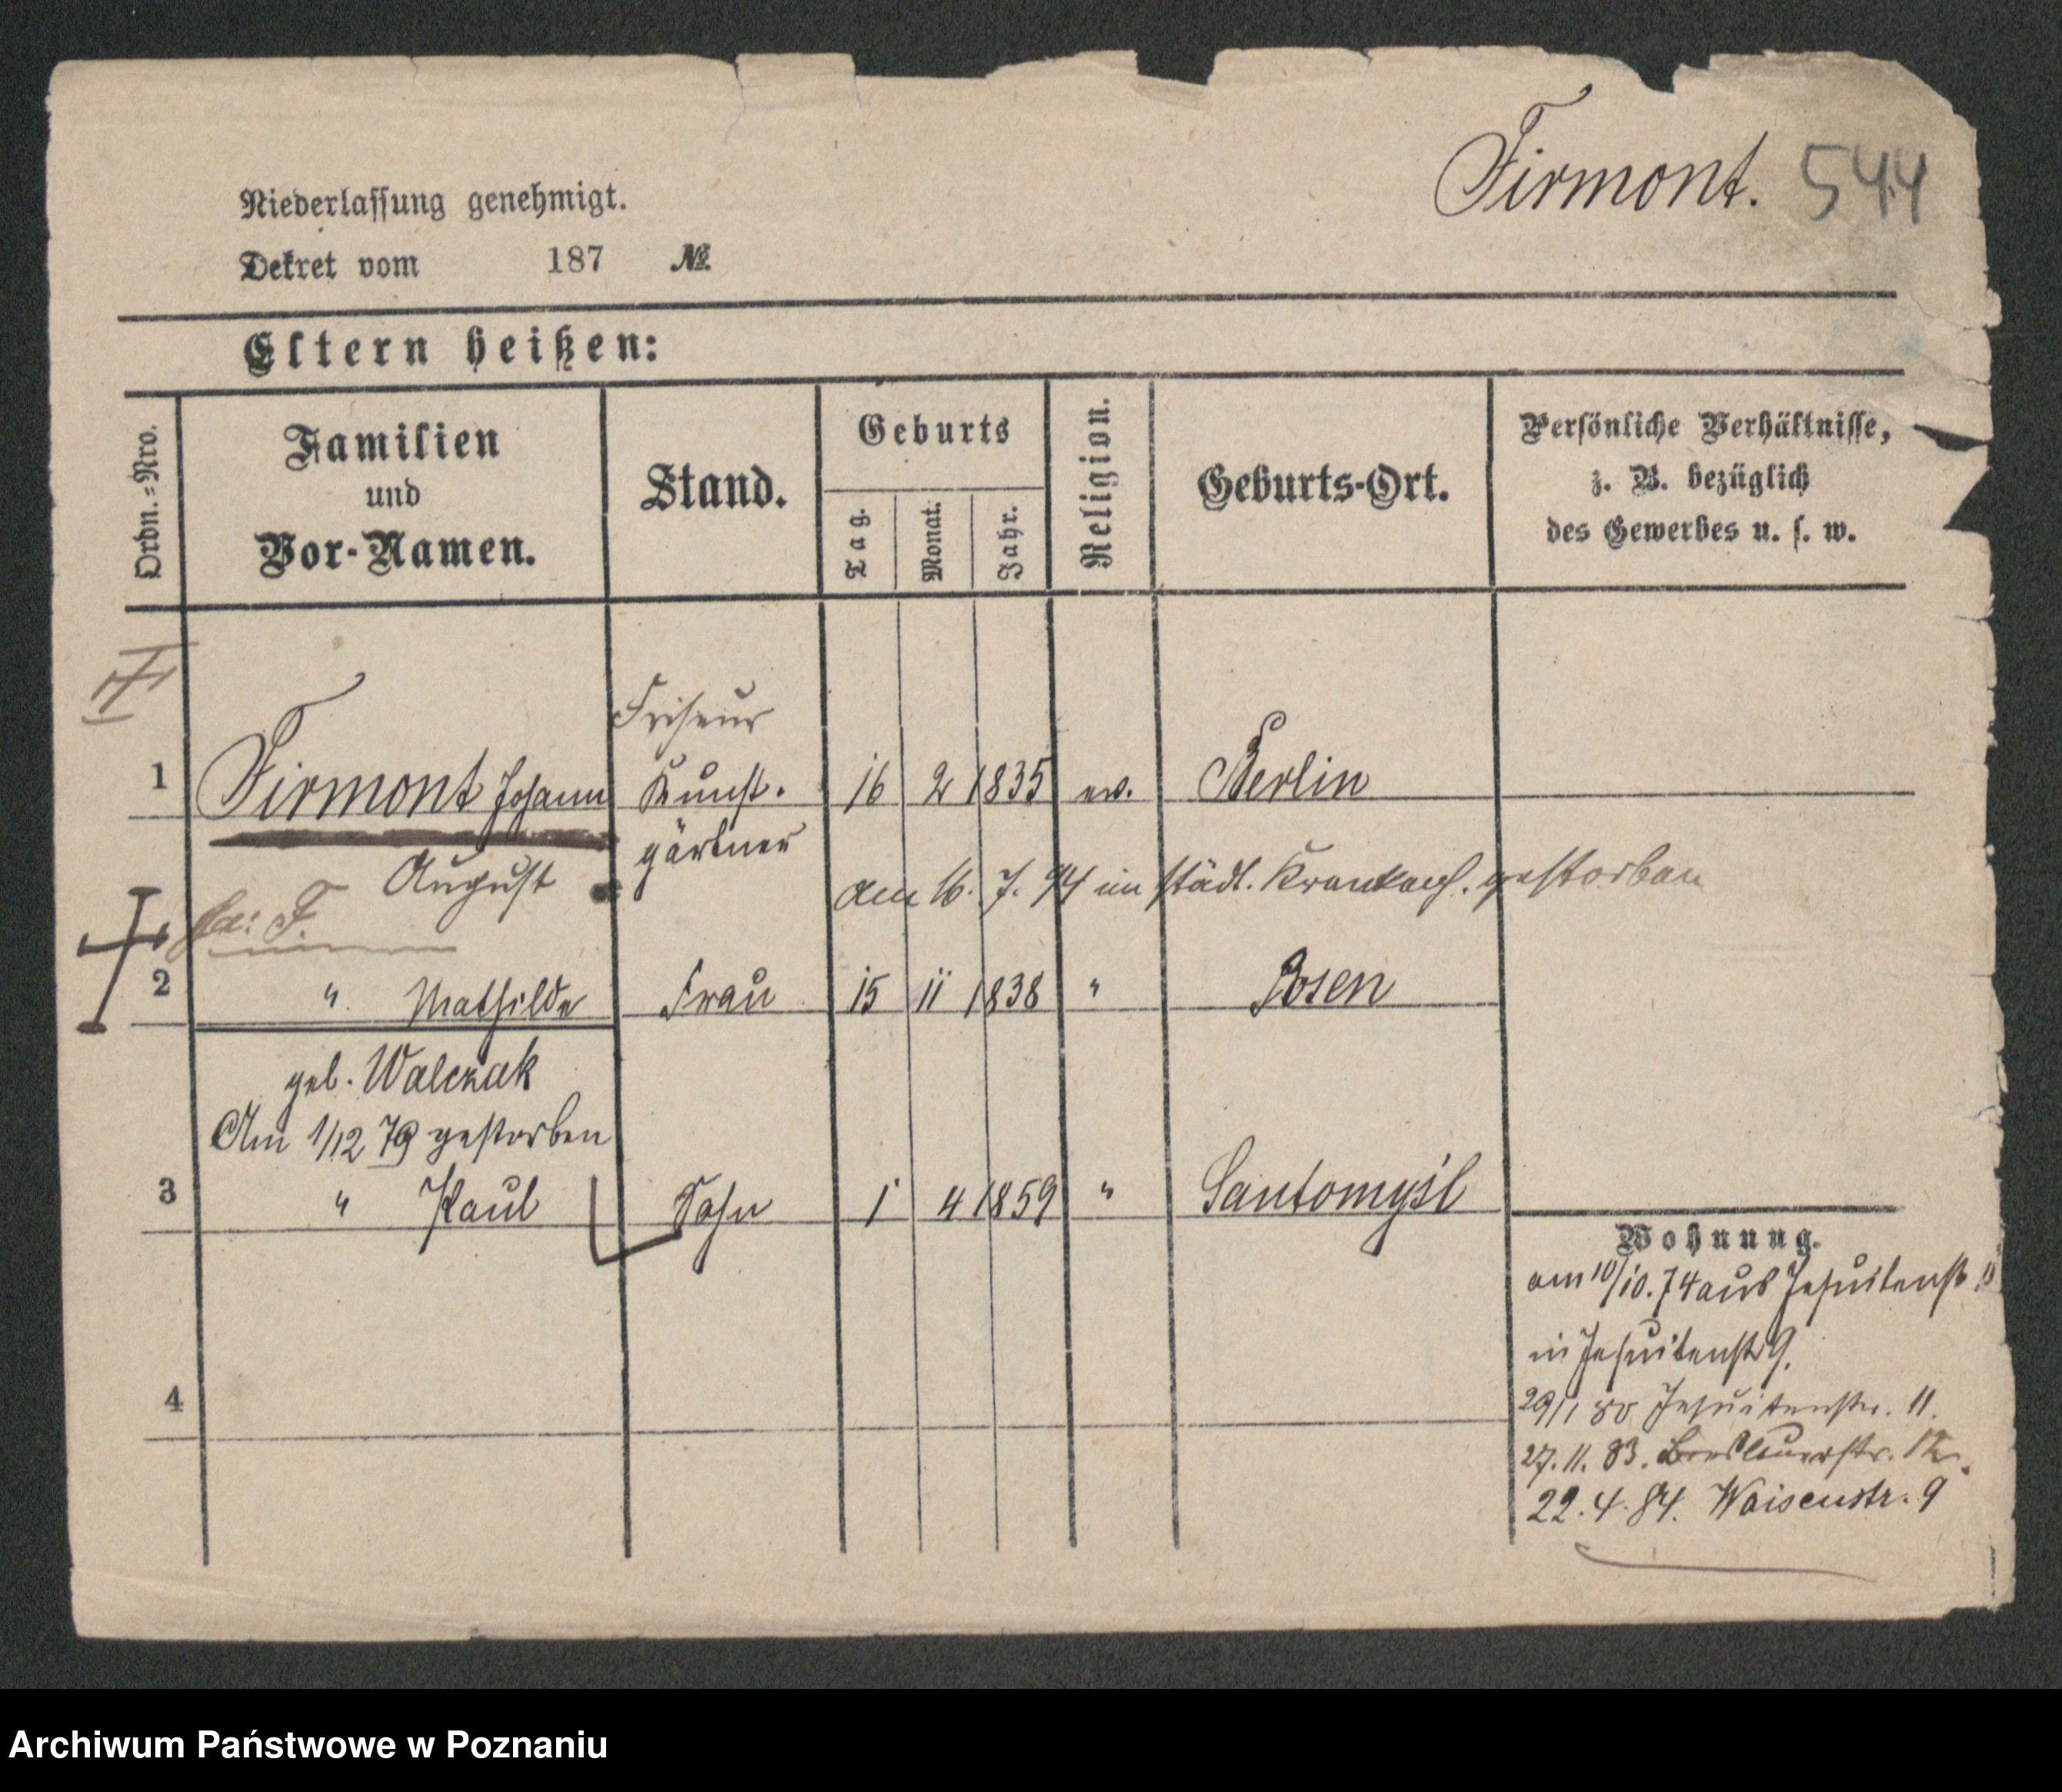 Firmont. 544
Niederlassung genehmigt.
Dekret vom 187 №
Eltern heißen:
Ordn.=Nro.
Familien
und
Vor-Namen.
Stand.
Geburts
Tag.
Monat.
Jahr.
Religion.
Geburts-Ort.
Persönliche Verhältnisse,
z. B. bezüglich
des Gewerbes u. s. w.
Friseur
1 Firmont Johann Kunst. 16 2 1835 ev. Berlin
gärtner
August
am 16. 7. 94 im städt. Krankenh. gestorben
2 " Mathilde Frau 15 11 1838 " Posen
geb. Walczak
Am 1/12 79 gestorben
3 " Paul Sohn 1 4 1859 " Santomyśl
4
Wohnung.
am 10/10. 74 aus Jesuitenstr
in Jesuitenstr 9.
29/1 80 Jesuitenstr. 11.
27. 11. 83. Breslauerstr.
22. 4. 84. Waisenstr. 9
Archiwum Państwowe w Poznaniu